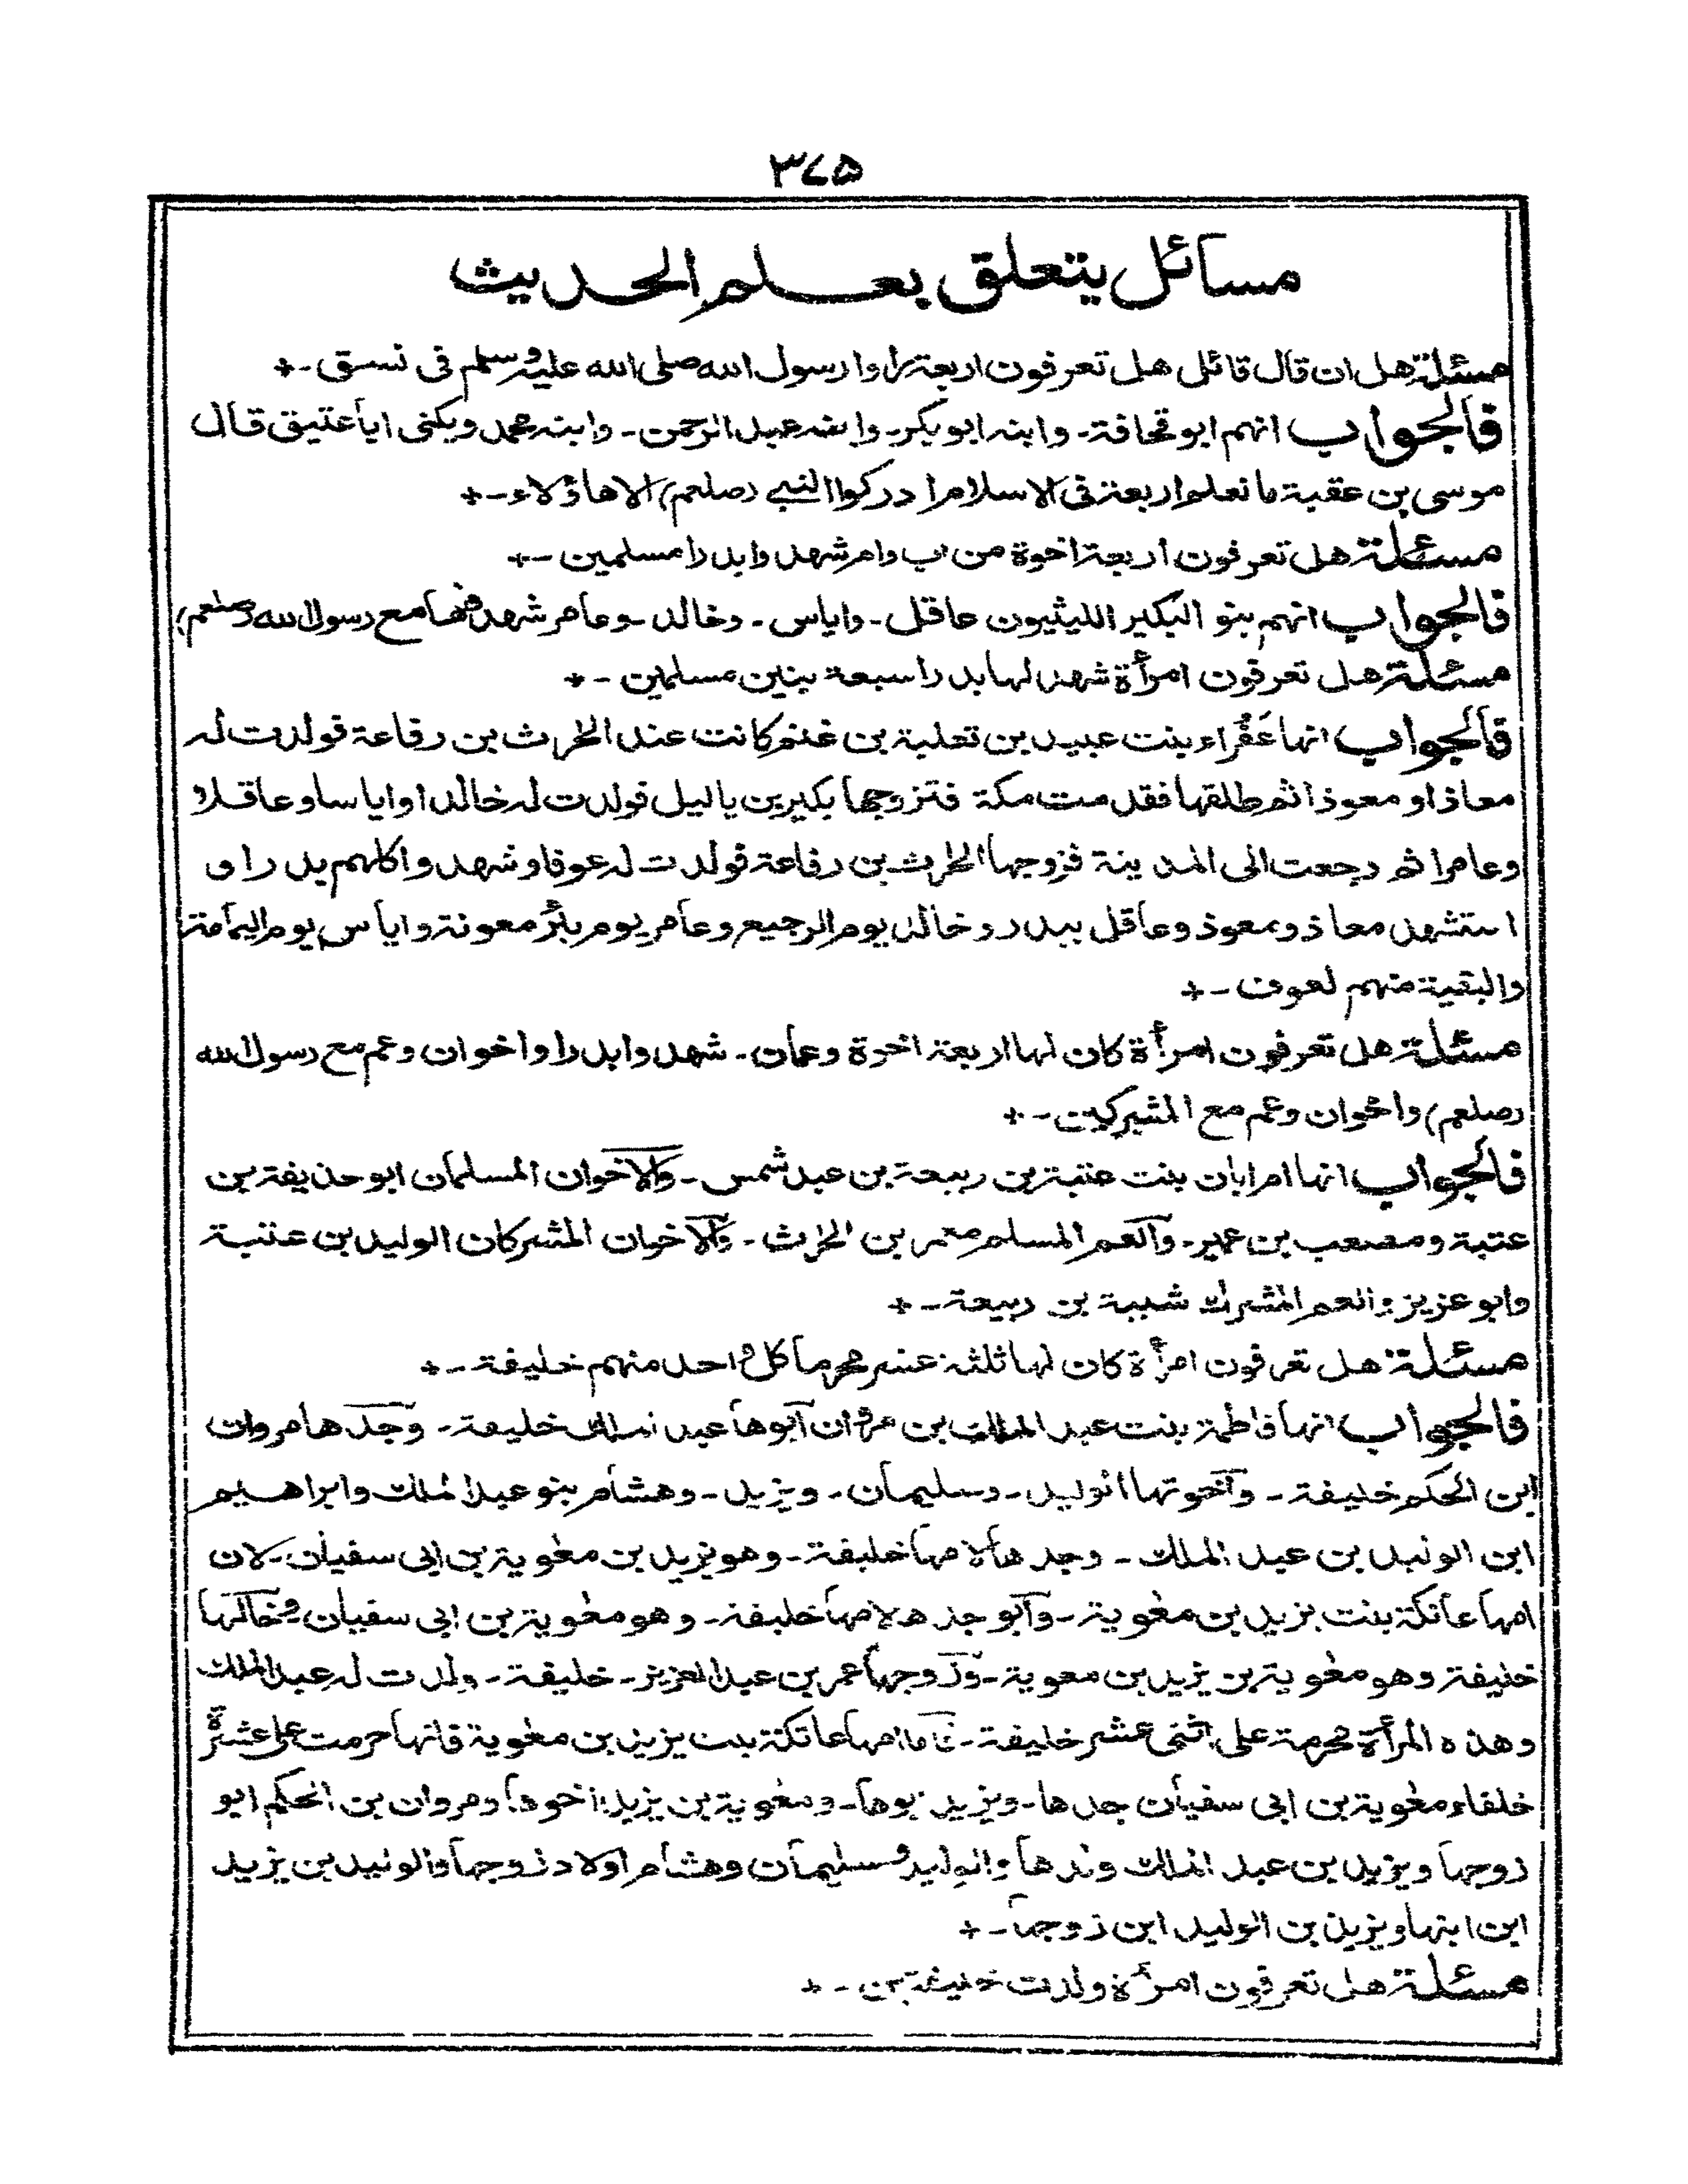 ۳۷۵
مسائل يتعلق بعلم الحديث
مسئلة هل ان قال قائل هل تعرفون اربعة راوا رسول الله صلى الله عليه وسلم فى نسق ـ +
فالجواب انهم ابو قحافة ـ وابنه ابو بكر ـ وابنه عبد الرحمن ـ وابنه محمد ويكنى ابا عتيق قال
موسى بن عقبة ما نعلم اربعة فى الاسلام ادركوا النبى (صلعم) الا هاؤلاء ـ +
مسئلة هل تعرفون اربعة اخوة من اب وام شهدوا بدرا مسلمين ـ +
فالجواب انهم بنو البكير الليثيون عاقل ـ واياس ـ وخالد ـ وعامر شهدوها مع رسول الله (صلعم)
مسئلة هل تعرفون امرأة شهد لها بدرا سبعة بنين مسلمين ـ +
فالجواب انها عفراء بنت عبيد بن ثعلبة بن غنم كانت عند الحرث بن رفاعة فولدت له
معاذا و معوذا ثم طلقها فقدمت مكة فتزوجها بكير بن ياليل فولدت له خالدا واياسا وعاقلا
وعامرا ثم رجعت الى المدينة فزوجها الحرث بن رفاعة فولدت له عوفا وشهدوا كلهم بدرا و
استشهد معاذ ومعوذ وعاقل ببدر وخالد يوم الرجيع وعامر يوم بئر معونة واياس يوم اليمامة
والبقية منهم لعوف ـ +
مسئلة هل تعرفون امرأة كان لها اربعة اخوة وعمان ـ شهدوا بدرا واخوان وعم مع رسول الله
(صلعم) واخوان وعم مع المشركين ـ +
فالجواب انها ام ابان بنت عتبة بن ربيعة بن عبد شمس ـ والاخوان المسلمان ابو حذيفة بن
عتبة ومصعب بن عمير ـ والعم المسلم معمر بن الحرث ـ والاخوان المشركان الوليد بن عتبة
وابو عزيز والعم المشرك شيبة بن ربيعة ـ +
مسئلة هل تعرفون امرأة كان لها ثلثة عشر محرما كل واحد منهم خليفة ـ +
فالجواب انها فاطمة بنت عبد الملك بن مروان ابوها عبد الملك خليفة ـ وجدها مروان
ابن الحكم خليفة ـ واخوتها الوليد ـ وسليمان ـ ويزيد ـ وهشام بنو عبد الملك وابراهيم
ابن الوليد بن عبد الملك ـ وجدها لامها خليفة ـ وهو يزيد بن معٰوية بن ابى سفيان ـ لان
امها عاتكة بنت يزيد بن معٰوية ـ وابو جدها لامها خليفة ـ وهو معٰوية بن ابى سفيان ـ وخالها
خليفة وهو معٰوية بن يزيد بن معوية ـ وزوجها عمر بن عبد العزيز ـ خليفة ـ ولدت له عبد الملك
وهذه المرأة محرمة على اثنى عشر خليفة ـ فاما امها عاتكة بنت يزيد بن معٰوية فانها حرمت على عشرة
خلفاء معٰوية بن ابى سفيان جدها ـ ويزيد ابوها ـ ومعٰوية بن يزيد اخوها ومروان بن الحكم ابو
زوجها ويزيد بن عبد الملك ولدها والوليد وسليمان وهشام اولاد زوجها والوليد بن يزيد
ابن ابنها ويزيد بن الوليد ابن زوجها ـ +
مسئلة هل تعرفون امرأة ولدت خليفتين ـ +